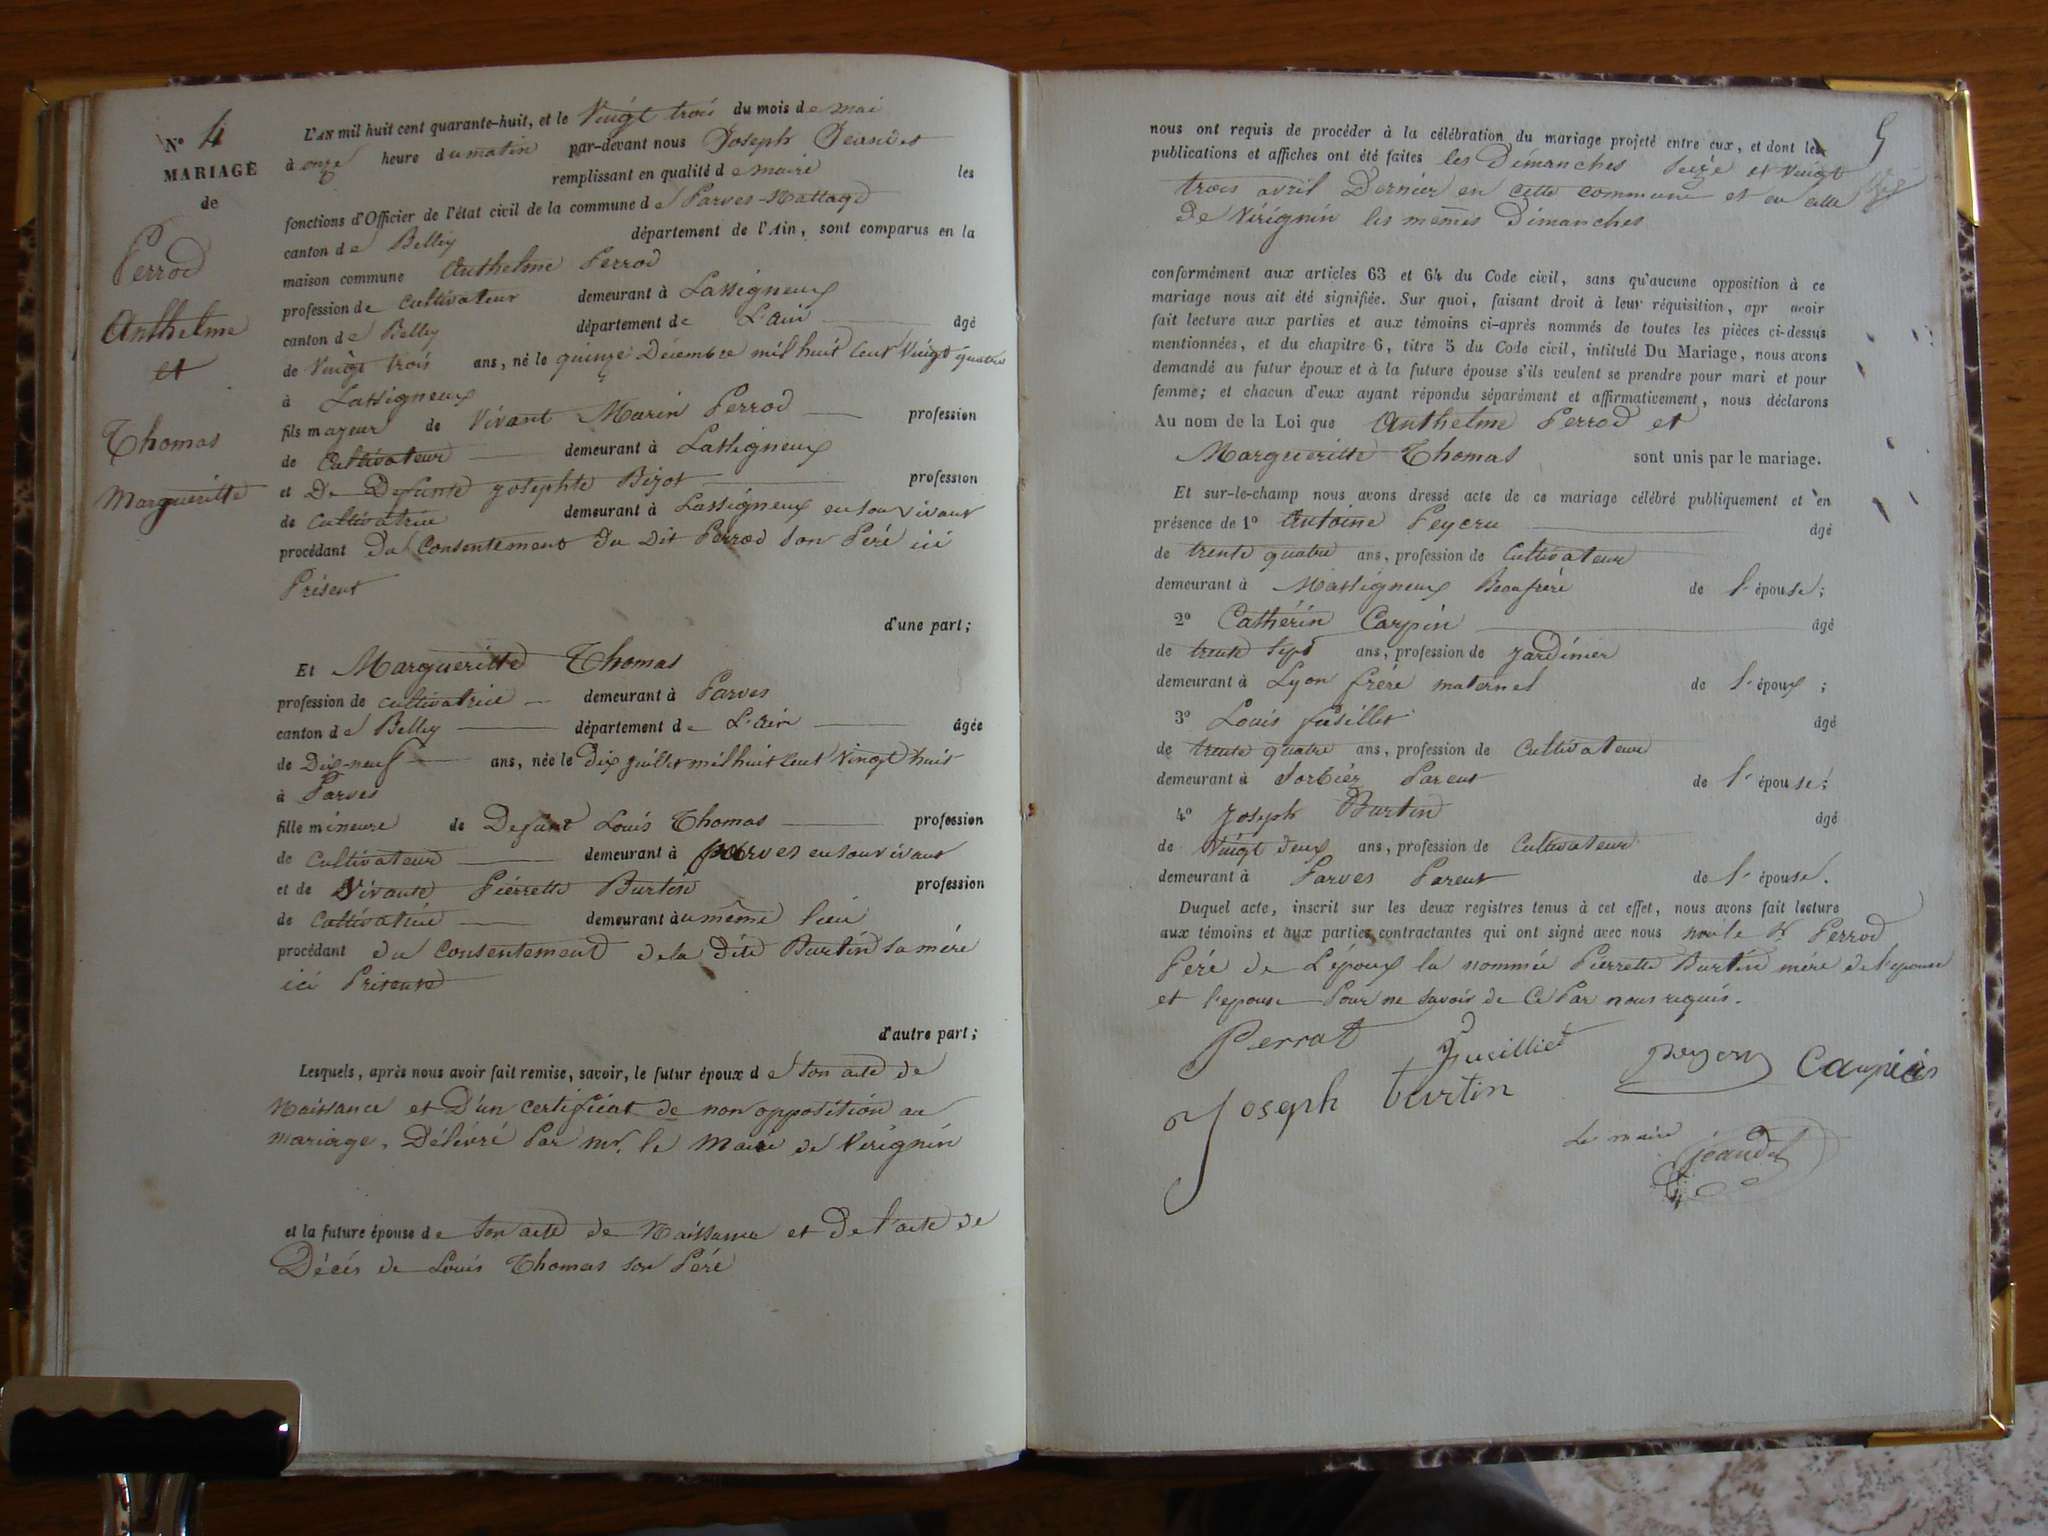 N° 4
MARIAGE
de
Perrod
Anthelme
et
Thomas
Margueritte
L'AN mil huit cent quarante-huit, et le Vingt trois du mois de mai
à onze heure du matin par-devant nous Joseph Jeandet
remplissant en qualité de maire les
fonctions d'Officier de l'état civil de la commune de Parves-Nattage
canton de Belley département de l'Ain, sont comparus en la
maison commune Anthelme Perrod
profession de cultivateur demeurant à Lassigneux
canton de Belley département de L'ain âgé
de Vingt trois ans, né le quinze Décembre mil huit cent Vingt quatre
à Lassigneux
fils majeur de Vivant Marin Perrod profession
de Cultivateur demeurant à Lassigneux
et De Defunte Josephte Bizot profession
de Cultivatrice demeurant à Lassigneux en son vivant
procédant Du Consentement du Dit Perrod son Péré ici
Présent
d'une part;
Et Margueritte Thomas
profession de cultivatrice demeurant à Parves
canton de Belley département de L'ain âgée
de Dix-neuf ans, née le Dix juillet mil huit cent vingt huit
à Parves
fille mineure de Defunt Louis Thomas profession
de Cultivateur demeurant à parves en son vivant
et de Vivante Piérrette Burtin profession
de Cultivatrice demeurant au même lieu
procédant du consentement de la Dite Burtin sa mére
ici Présente
d'autre part;
Lesquels, après nous avoir fait remise, savoir, le futur époux de son acte de
Naissance et D'un certificat de non opposition au
mariage, Délivré Par mr. le Maire de Virignin
et la future épouse de son acte de Naissance et De l'acte de
Décés de Louis Thomas son Péré
5
nous ont requis de procéder à la célébration du mariage projeté entre eux, et dont les
publications et affiches ont été faites les Dimanches seize et vingt
trois avril Dernier en cette commune et en celle
de Virignin les mêmes Dimanches
conformément aux articles 63 et 64 du Code civil, sans qu'aucune opposition à ce
mariage nous ait été signifiée. Sur quoi, faisant droit à leur réquisition, apr avoir
fait lecture aux parties et aux témoins ci-après nommés de toutes les pièces ci-dessus
mentionnées, et du chapitre 6, titre 5 du Code civil, intitulé Du Mariage, nous avons
demandé au futur époux et à la future épouse s'ils veulent se prendre pour mari et pour
femme; et chacun d'eux ayant répondu séparément et affirmativement, nous déclarons
Au nom de la Loi que Anthelme Perrod et
Margueritte Thomas sont unis par le mariage.
Et sur-le-champ nous avons dressé acte de ce mariage célébré publiquement et en
présence de 1° Antoine Peycru âgé
de trente quatre ans, profession de Cultivateur
demeurant à Massigneux Beaufréré de l'épouse;
2° Cathérin Carpin âgé
de trente sept ans, profession de jardinier
demeurant à Lyon fréré maternel de l'époux;
3° Louis fusillet âgé
de trente quatre ans, profession de Cultivateur
demeurant à Sorbiéz Parent de l'épouse;
4° Joseph Burtin âgé
de Vingt deux ans, profession de Cultivateur
demeurant à Parves Parent de l'épouse.
Duquel acte, inscrit sur les deux registres tenus à cet effet, nous avons fait lecture
aux témoins et aux parties contractantes qui ont signé avec nous Perrod
Péré de L'époux la nommée Pierrette Burtin mére de l'épouse
et l'epouse Pour ne savoir de Ce Par nous requis.
Perrat fuzillet peycru Caupin
Joseph burtin
Le maire
jeandet